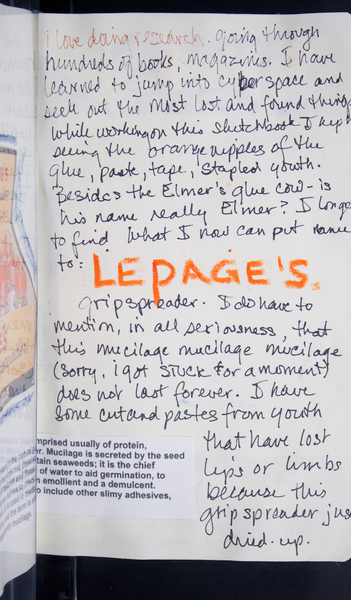 I love doing research. Going through
hundreds of books, magazines. I have
learned to jump into cyberspace and
seek out the most lost and found things
while working on this sketchbook I kept
seeing the orange nipples of the
glue, paste, tape, stapled youth.
Besides the Elmer's glue cow - is
his name really Elmer? I longed
to find what I now can put name
to: LEPAGE'S
gripspreader. I do have to
mention, in all seriousness, that
this mucilage mucilage mucilage
(sorry, i got stuck for a moment)
does not last forever. I have
some cut and pastes from youth
that have lost
lips or limbs
because this
gripspreader just
dried up.
mprised usually of protein,
r. Mucilage is secreted by the seed
tain seaweeds; it is the chief
of water to aid germination, to
n emollient and a demulcent.
o include other slimy adhesives,